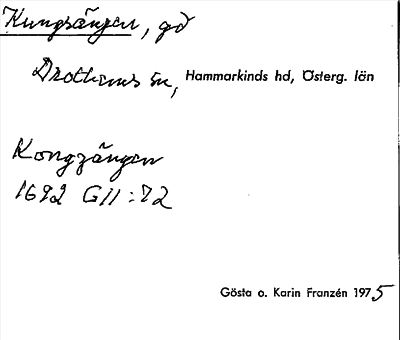 Kungsängen, gd
Drothems sn, Hammarkinds hd, Österg. län
Kongzängen
1692 GII:72
Gösta o. Karin Franzén 1975